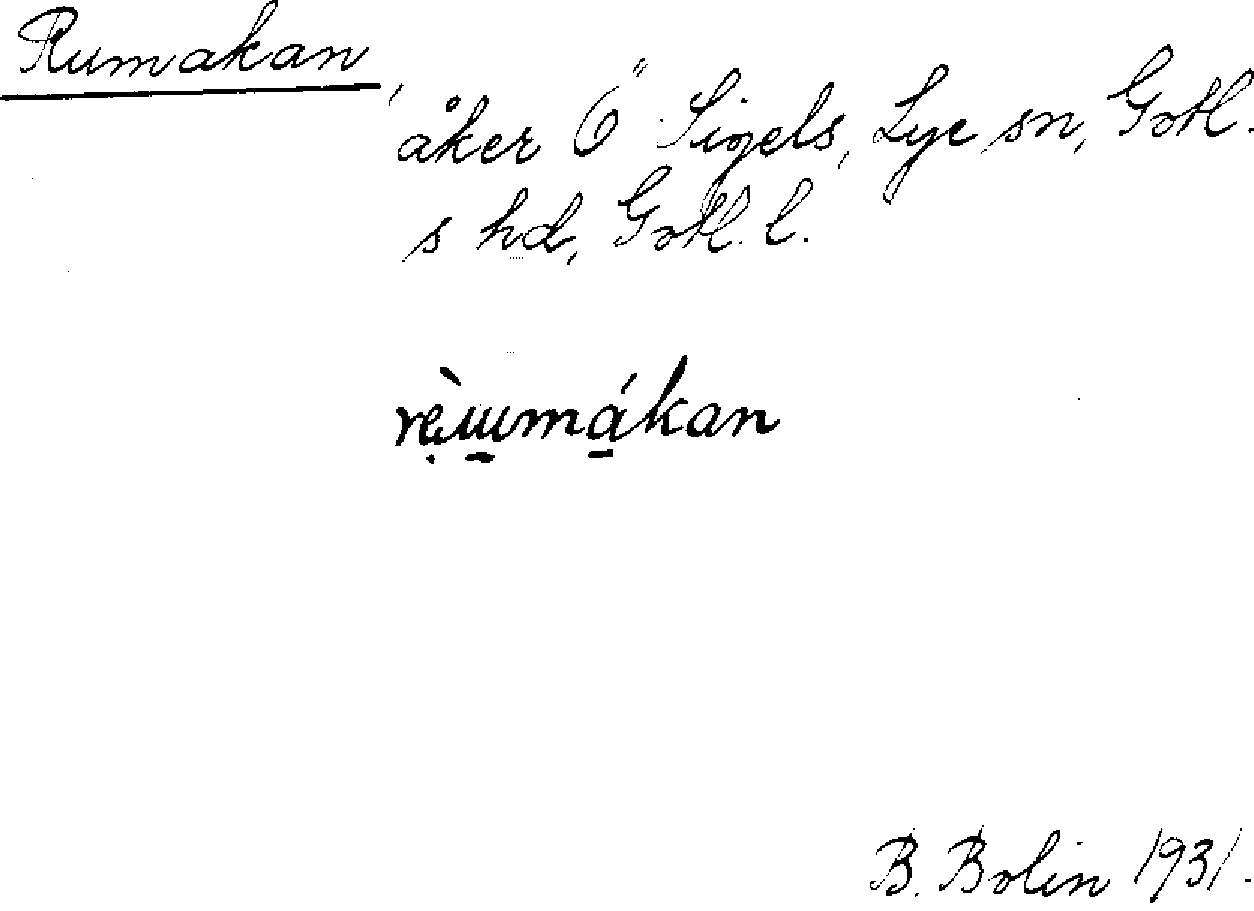 Rumakan,
åker Ö Sigels, Lye sn, Gotl.
s hd, Gotl. l.
B. Bolin 1931.